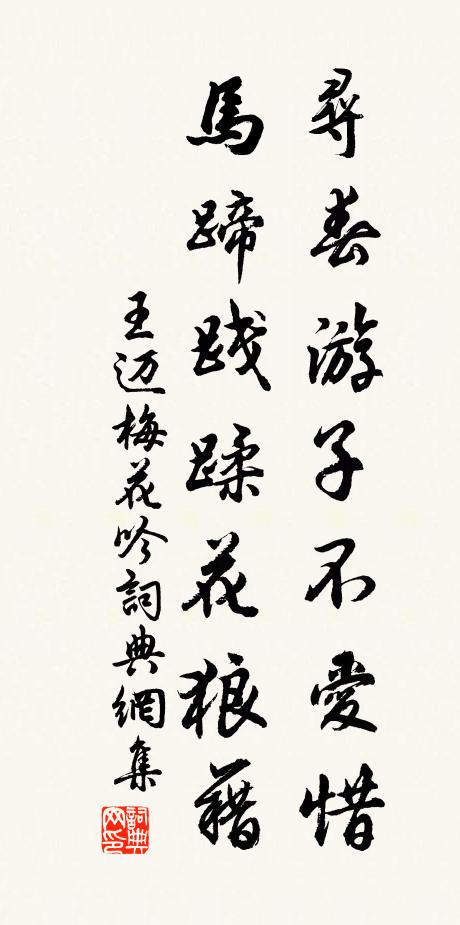 尋春游子不愛惜
馬蹄踐蹂花狼藉
王迈梅花吟詞典網集
詞典网印